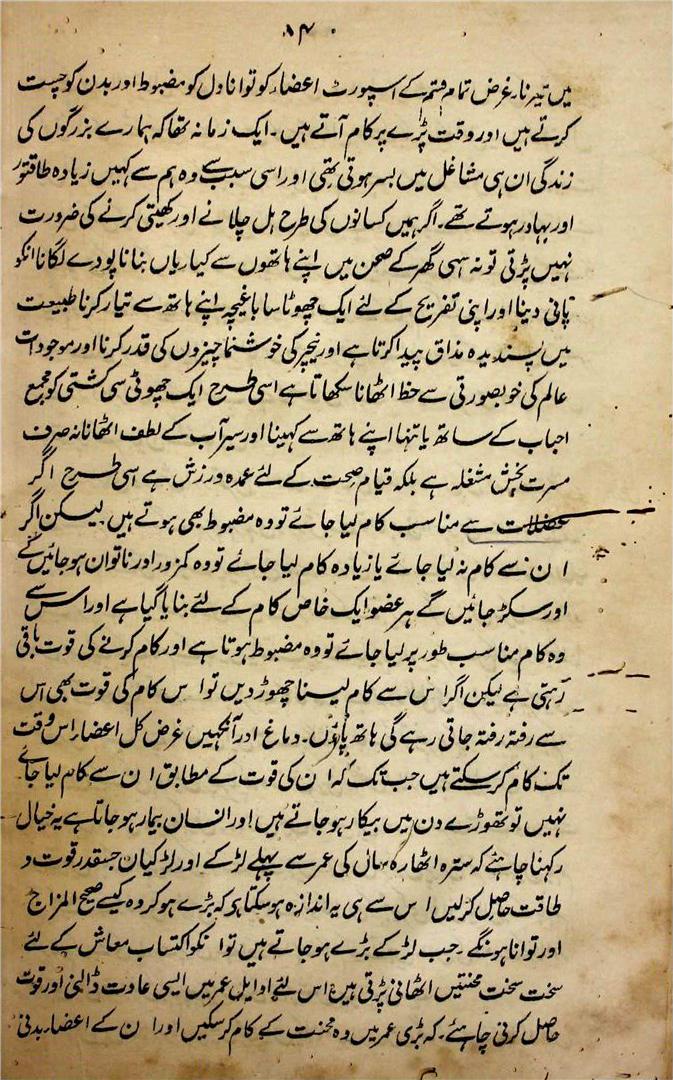 ۱۴
میں تیرنا۔ غرض تمام قسم کے اسپورٹ اعضاء کو توانا دل کو مضبوط اور بدن کو چست
کرتے ہیں اور وقت پڑے پر کام آتے ہیں۔ ایک زمانہ تھا کہ ہمارے بزرگوں کی
زندگی ان ہی مشاغل میں بسر ہوتی تھی اور اسی سبب سے وہ ہم سے کہیں زیادہ طاقتور
اور بہادر ہوتے تھے۔ اگر ہمیں کسانوں کی طرح ہل چلانے اور کھیتی کرنے کی ضرورت
نہیں پڑتی تو نہ سہی گھر کے صحن میں اپنے ہاتھوں سے کیاریاں بنانا پودے لگانا انکو
پانی دینا اور اپنی تفریح کے لئے ایک چھوٹا سا باغیچہ اپنے ہاتھ سے تیار کرنا طبیعت
میں پسندیدہ مذاق پیدا کرتا ہے اور نیچر کی خوشنما چیزوں کی قدر کرنا اور موجودات
عالم کی خوبصورتی سے حظ اٹھانا سکھاتا ہے اسی طرح ایک چھوٹی سی کشتی کو مجمع
احباب کے ساتھ یا تنہا اپنے ہاتھ سے کہینا اور سیر آب کے لطف اٹھانا نہ صرف
مسرت بخش مشغلہ ہے بلکہ قیام صحت کے لئے عمدہ ورزش ہے اسی طرح اگر
عضلات سے مناسب کام لیا جائے تو وہ مضبوط بھی ہوتے ہیں لیکن اگر
ان سے کام نہ لیا جائے یا زیادہ کام لیا جائے تو وہ کمزور اور ناتوان ہو جائیں گے
اور سکڑ جائیں گے ہر عضو ایک خاص کام کے لئے بنایا گیا ہے اور اس سے
وہ کام مناسب طور پر لیا جائے تو وہ مضبوط ہوتا ہے اور کام کرنے کی قوت باقی
رہتی ہے لیکن اگر اس سے کام لینا چھوڑ دیں تو اس کام کی قوت بھی اس
سے رفتہ رفتہ جاتی رہے گی ہاتھ پاؤں۔ دماغ اور آنکہیں غرض کل اعضاء اس وقت
تک کام کر سکتے ہیں جب تک کہ ان کی قوت کے مطابق ان سے کام لیا جائے
نہیں تو تھوڑے دن میں بیکار ہو جاتے ہیں اور انسان بیمار ہو جاتا ہے یہ خیال
رکھنا چاہئے کہ سترہ اٹھارہ سال کی عمر سے پہلے لڑکے اور لڑکیاں جسقدر قوت و
طاقت حاصل کرلیں اس سے ہی یہ اندازہ ہو سکتا ہی کہ بڑے ہو کر وہ کیسے صحیح المزاج
اور توانا ہونگے۔ جب لڑکے بڑے ہو جاتے ہیں تو انکو اکتساب معاش کے لئے
سخت سخت محنتیں اٹھانی پڑتی ہیں اس لئے اوایل عمر میں ایسی عادت ڈالنی اور قوت
حاصل کرنی چاہئے۔ کہ بڑی عمر میں وہ محنت کے کام کر سکیں اور ان کے اعضاء بدنی